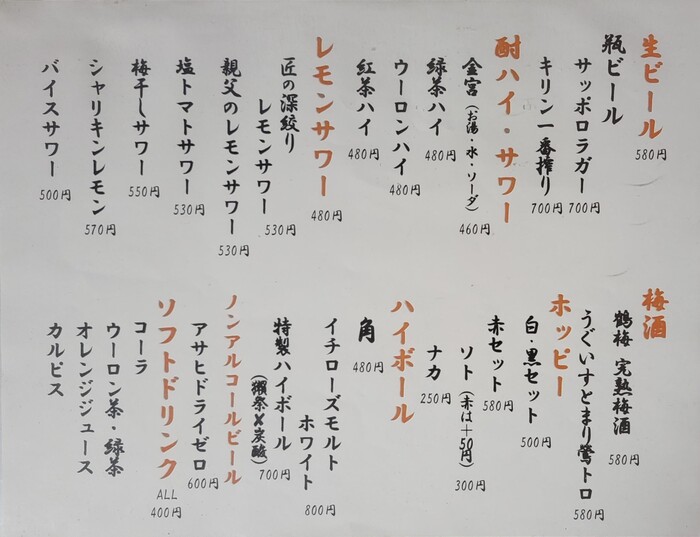 生ビール 580円
瓶ビール
サッポロラガー 700円
キリン一番搾り 700円
酎ハイ・サワー
金宮(お湯・水・ソーダ) 460円
緑茶ハイ 480円
ウーロンハイ 480円
紅茶ハイ 480円
レモンサワー 480円
匠の深絞り
レモンサワー 530円
親父のレモンサワー 530円
塩トマトサワー 530円
梅干しサワー 550円
シャリキンレモン 570円
バイスサワー 500円
梅酒
鶴梅 完熟梅酒 580円
うぐいすとまり鶯トロ 580円
ホッピー
白・黒セット 500円
赤セット 580円
ソト(赤は+50円) 300円
ナカ 250円
ハイボール
角 480円
イチローズモルト
ホワイト 800円
特製ハイボール
(獺祭×炭酸) 700円
ノンアルコールビール
アサヒドライゼロ 600円
ソフトドリンク ALL 400円
コーラ
ウーロン茶・緑茶
オレンジジュース
カルピス